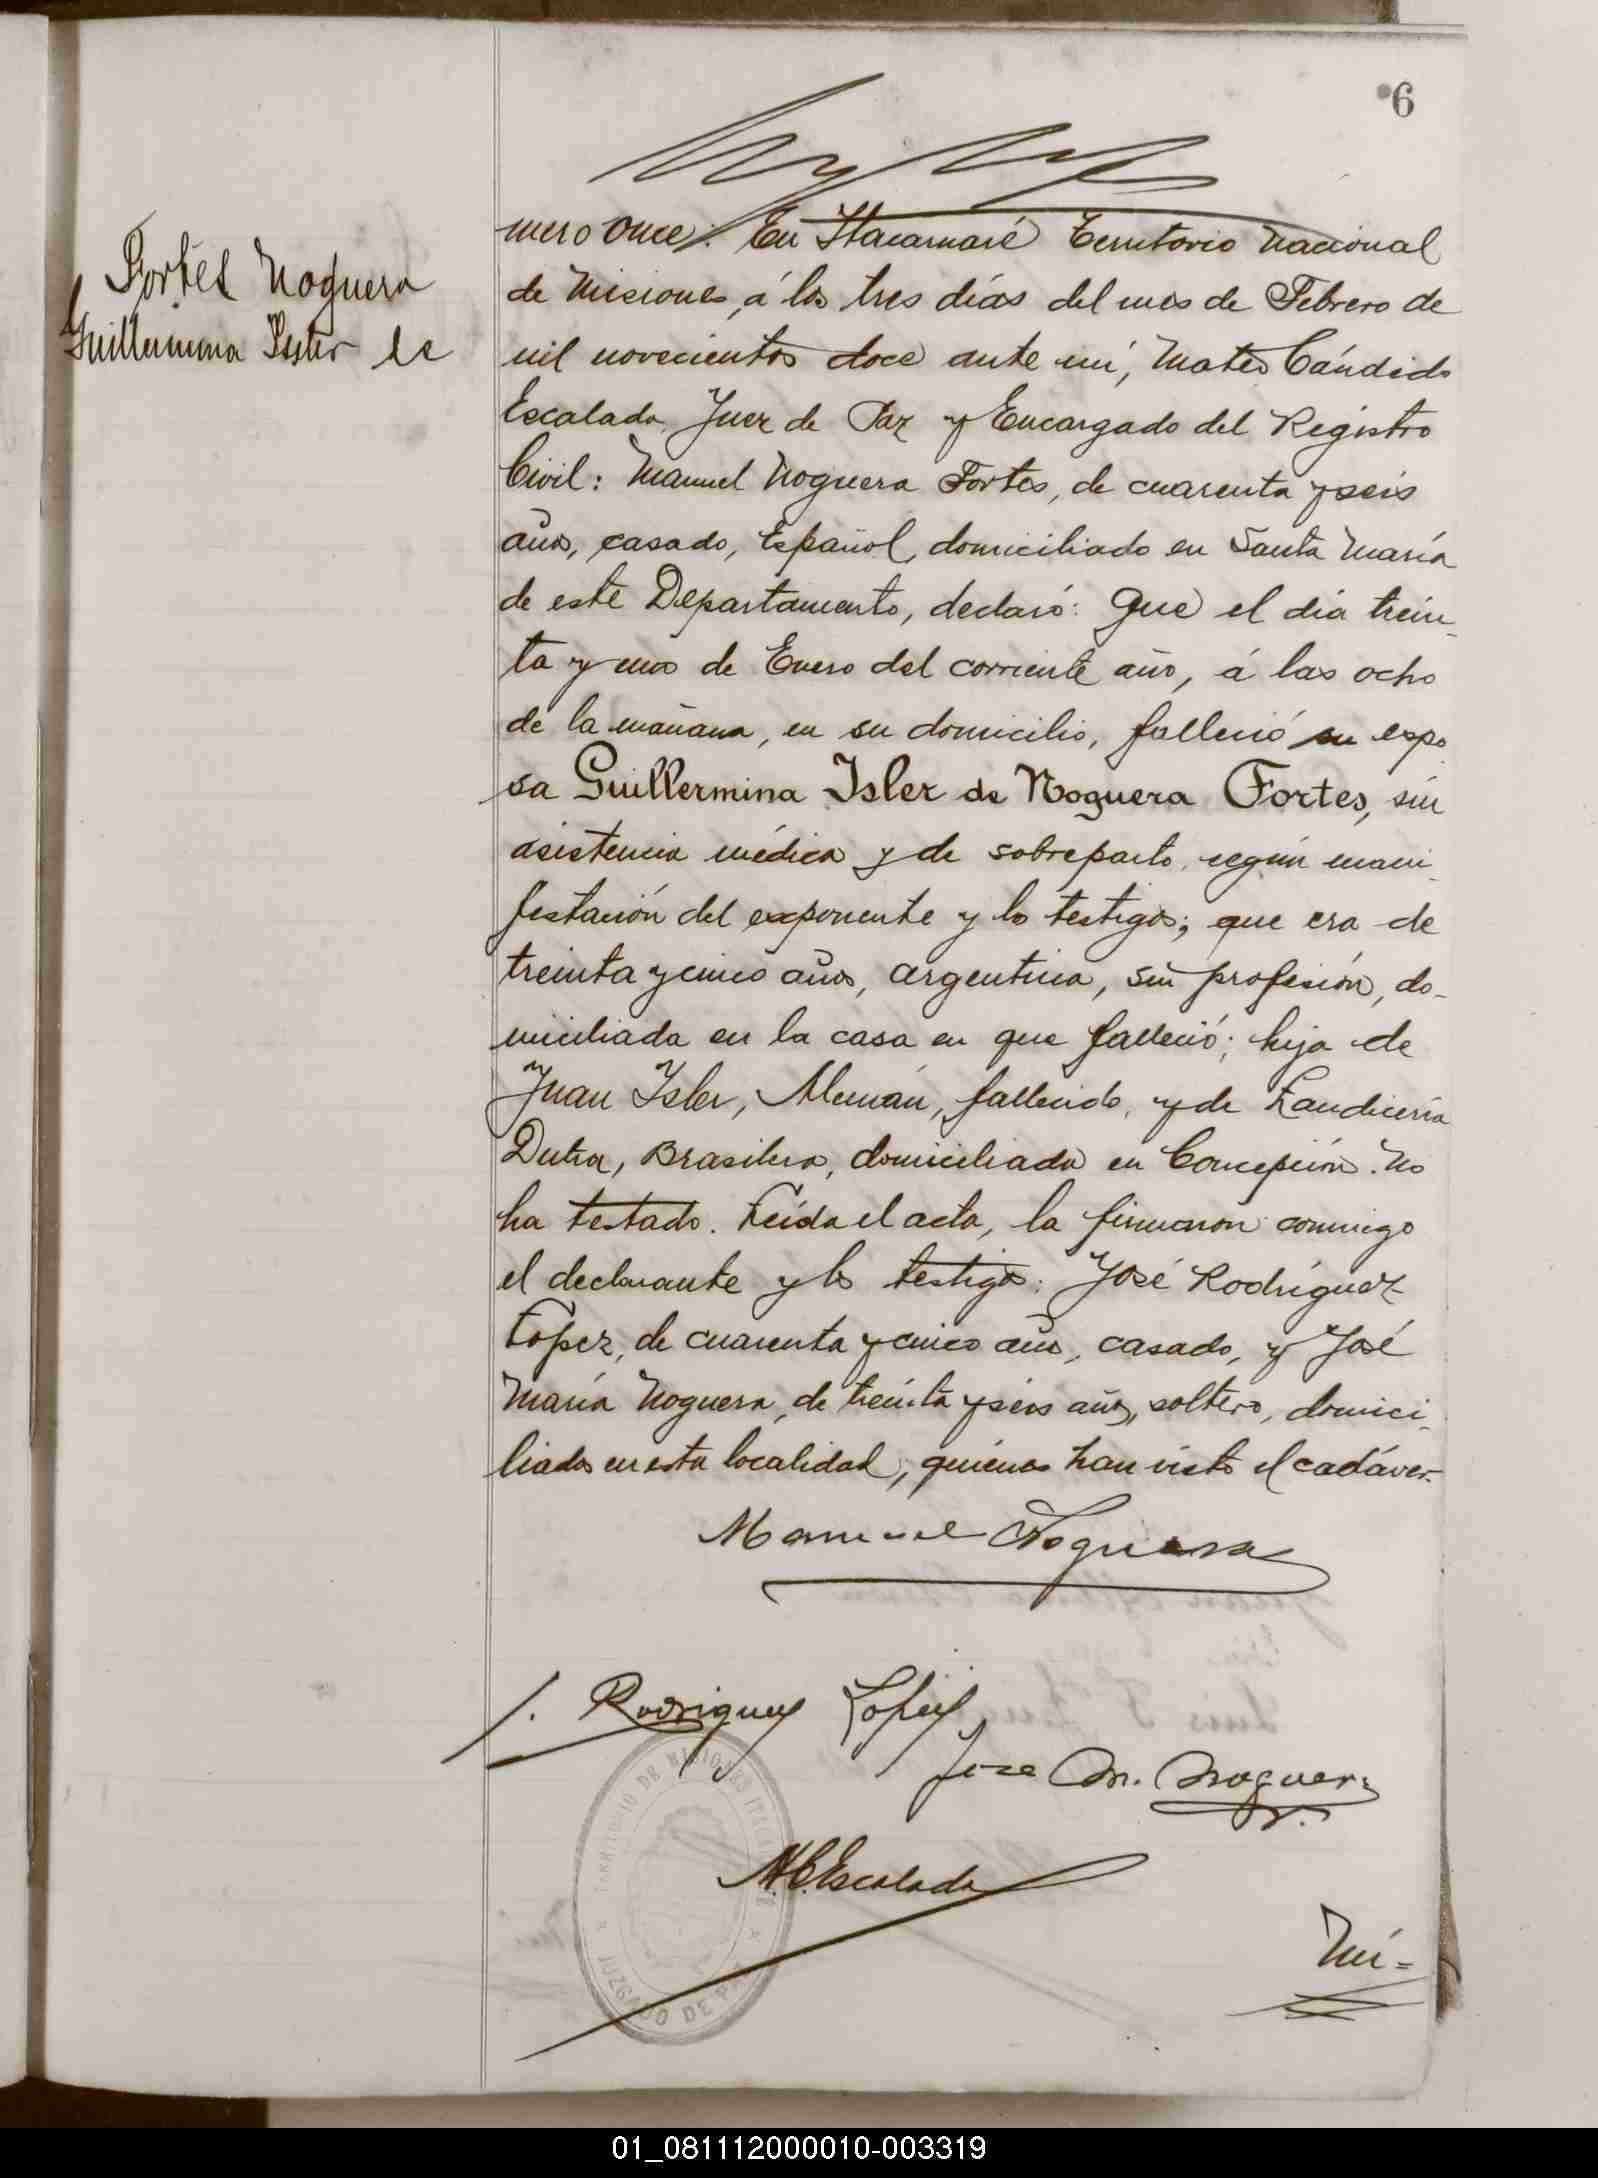 6
Fortes Noguera
Guillermina Isler de
mero once: En Itacaruaré Territorio Nacional
de Misiones, á los tres días del mes de Febrero de
mil novecientos doce ante mí, Mateo Cándido
Escalada, Juez de Paz y Encargado del Registro
Civil: Manuel Noguera Fortes, de cuarenta y seis
años, casado, Español, domiciliado en Santa María
de este Departamento, declaró: Que el día trein-
ta y uno de Enero del corriente año, á las ocho
de la mañana, en su domicilio, falleció su espo
sa Guillermina Isler de Noguera Fortes, sin
asistencia médica y de sobreparto, según mani-
festación del exponente y los testigos; que era de
treinta y cinco años, argentina, sin profesión, do-
miciliada en la casa en que falleció; hija de
Juan Isler, Alemán, fallecido, y de
Dutra, Brasilera, domiciliada en Concepción. No
ha testado. Leída el acta, la firmaron conmigo
el declarante y los testigos: José Rodríguez
López, de cuarenta y cinco años, casado, y José
María Noguera, de treinta y seis años, soltero, domici-
liados en esta localidad, quienes han visto el cadáver.
Manuel Noguera
J. Rodriguez Lopez
Jose M. Noguera
M.C. Escalada
JUZGADO DE PAZ
TERRITORIO DE MISIONES
Nú=
01_081112000010-003319